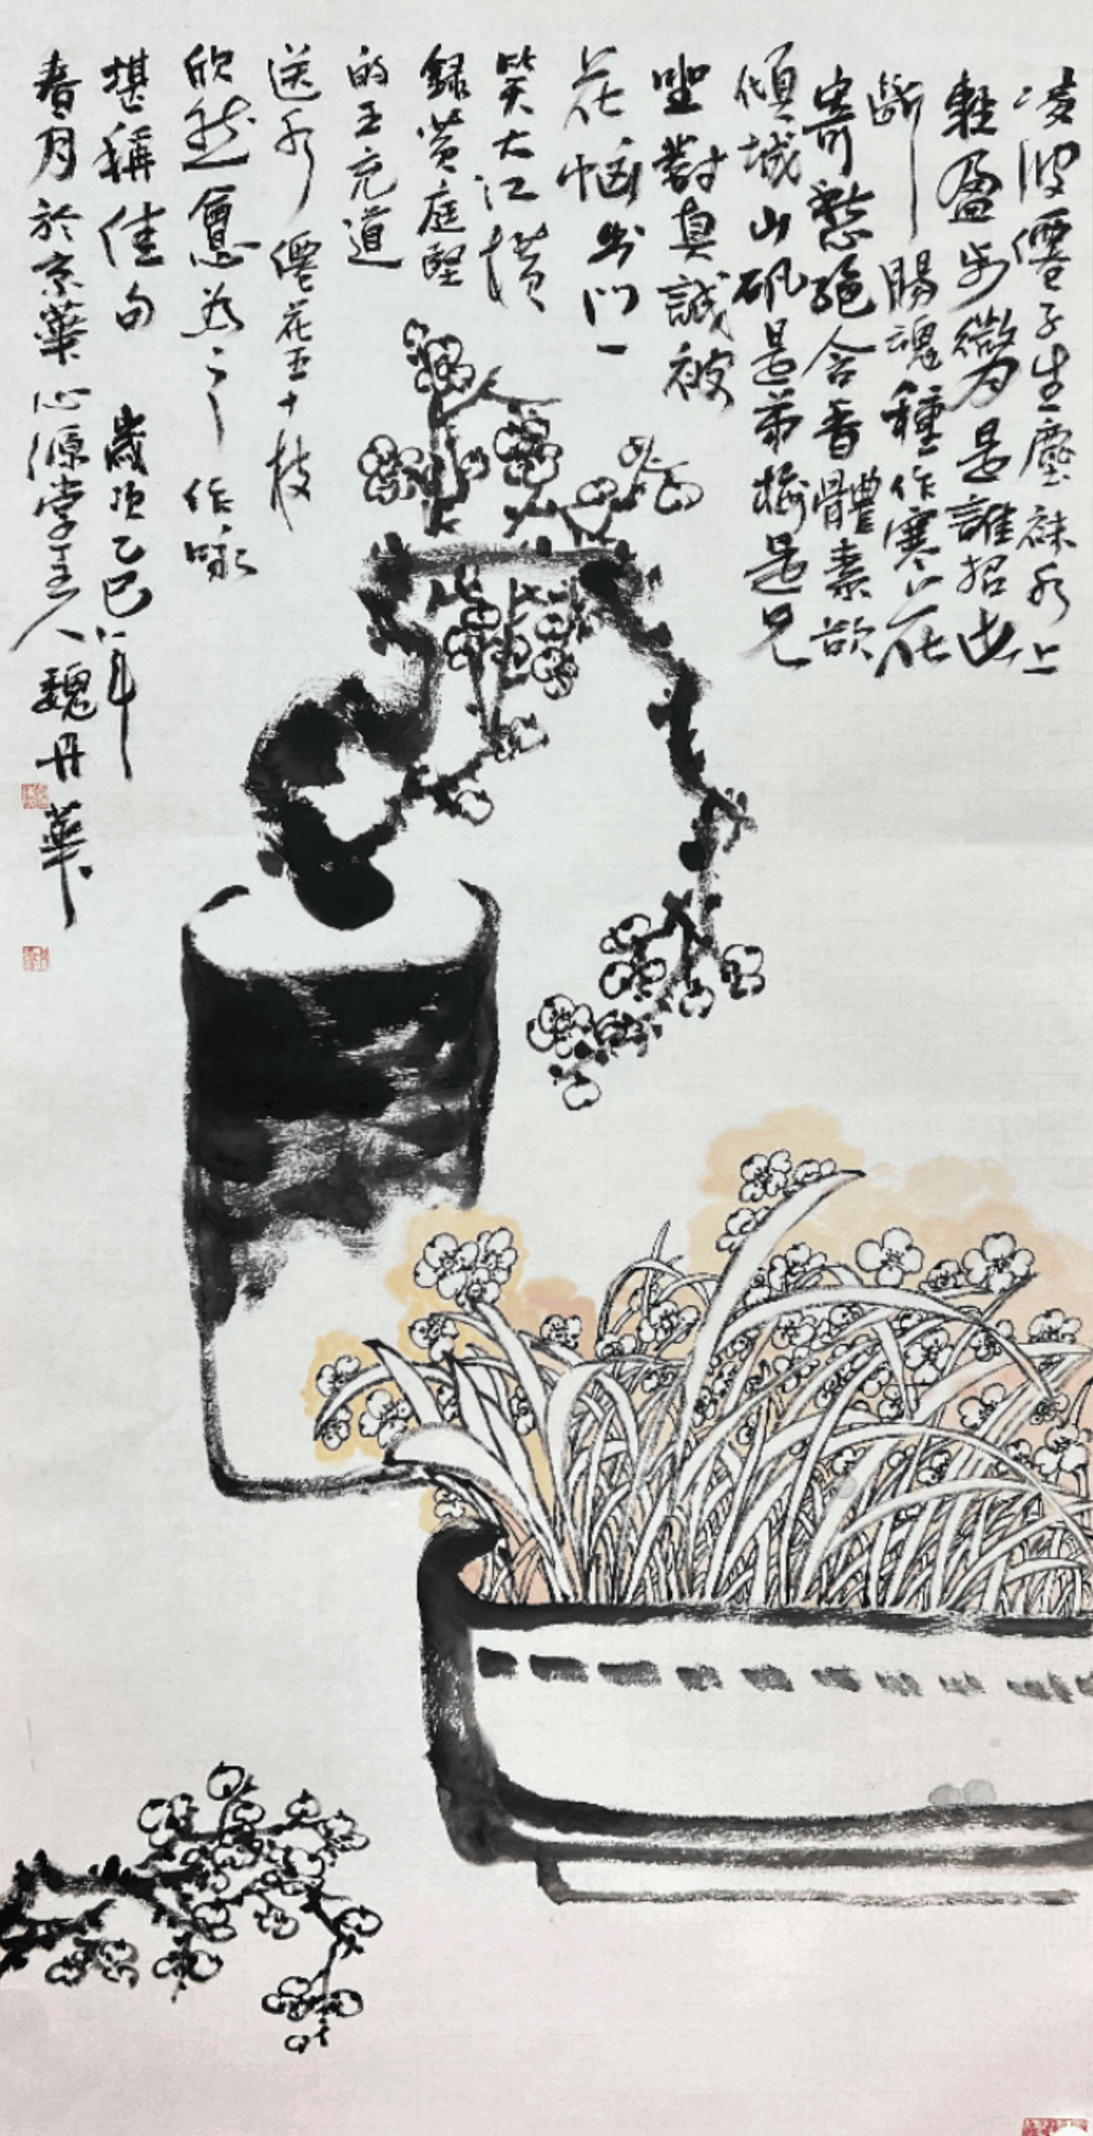 凌波僊子生塵襪水上
輕盈步微月是誰招此
斷腸魂種作寒花
寄愁絕含香體素欲
傾城山矾是弟梅是兄
坐對真誠被
花惱出門一
笑大江橫
録黃庭堅
的王充道
送水僊花五十枝
欣然會心為之作咏
堪稱佳句 歲次乙巳年
春月於京華心源堂主人魏丹華